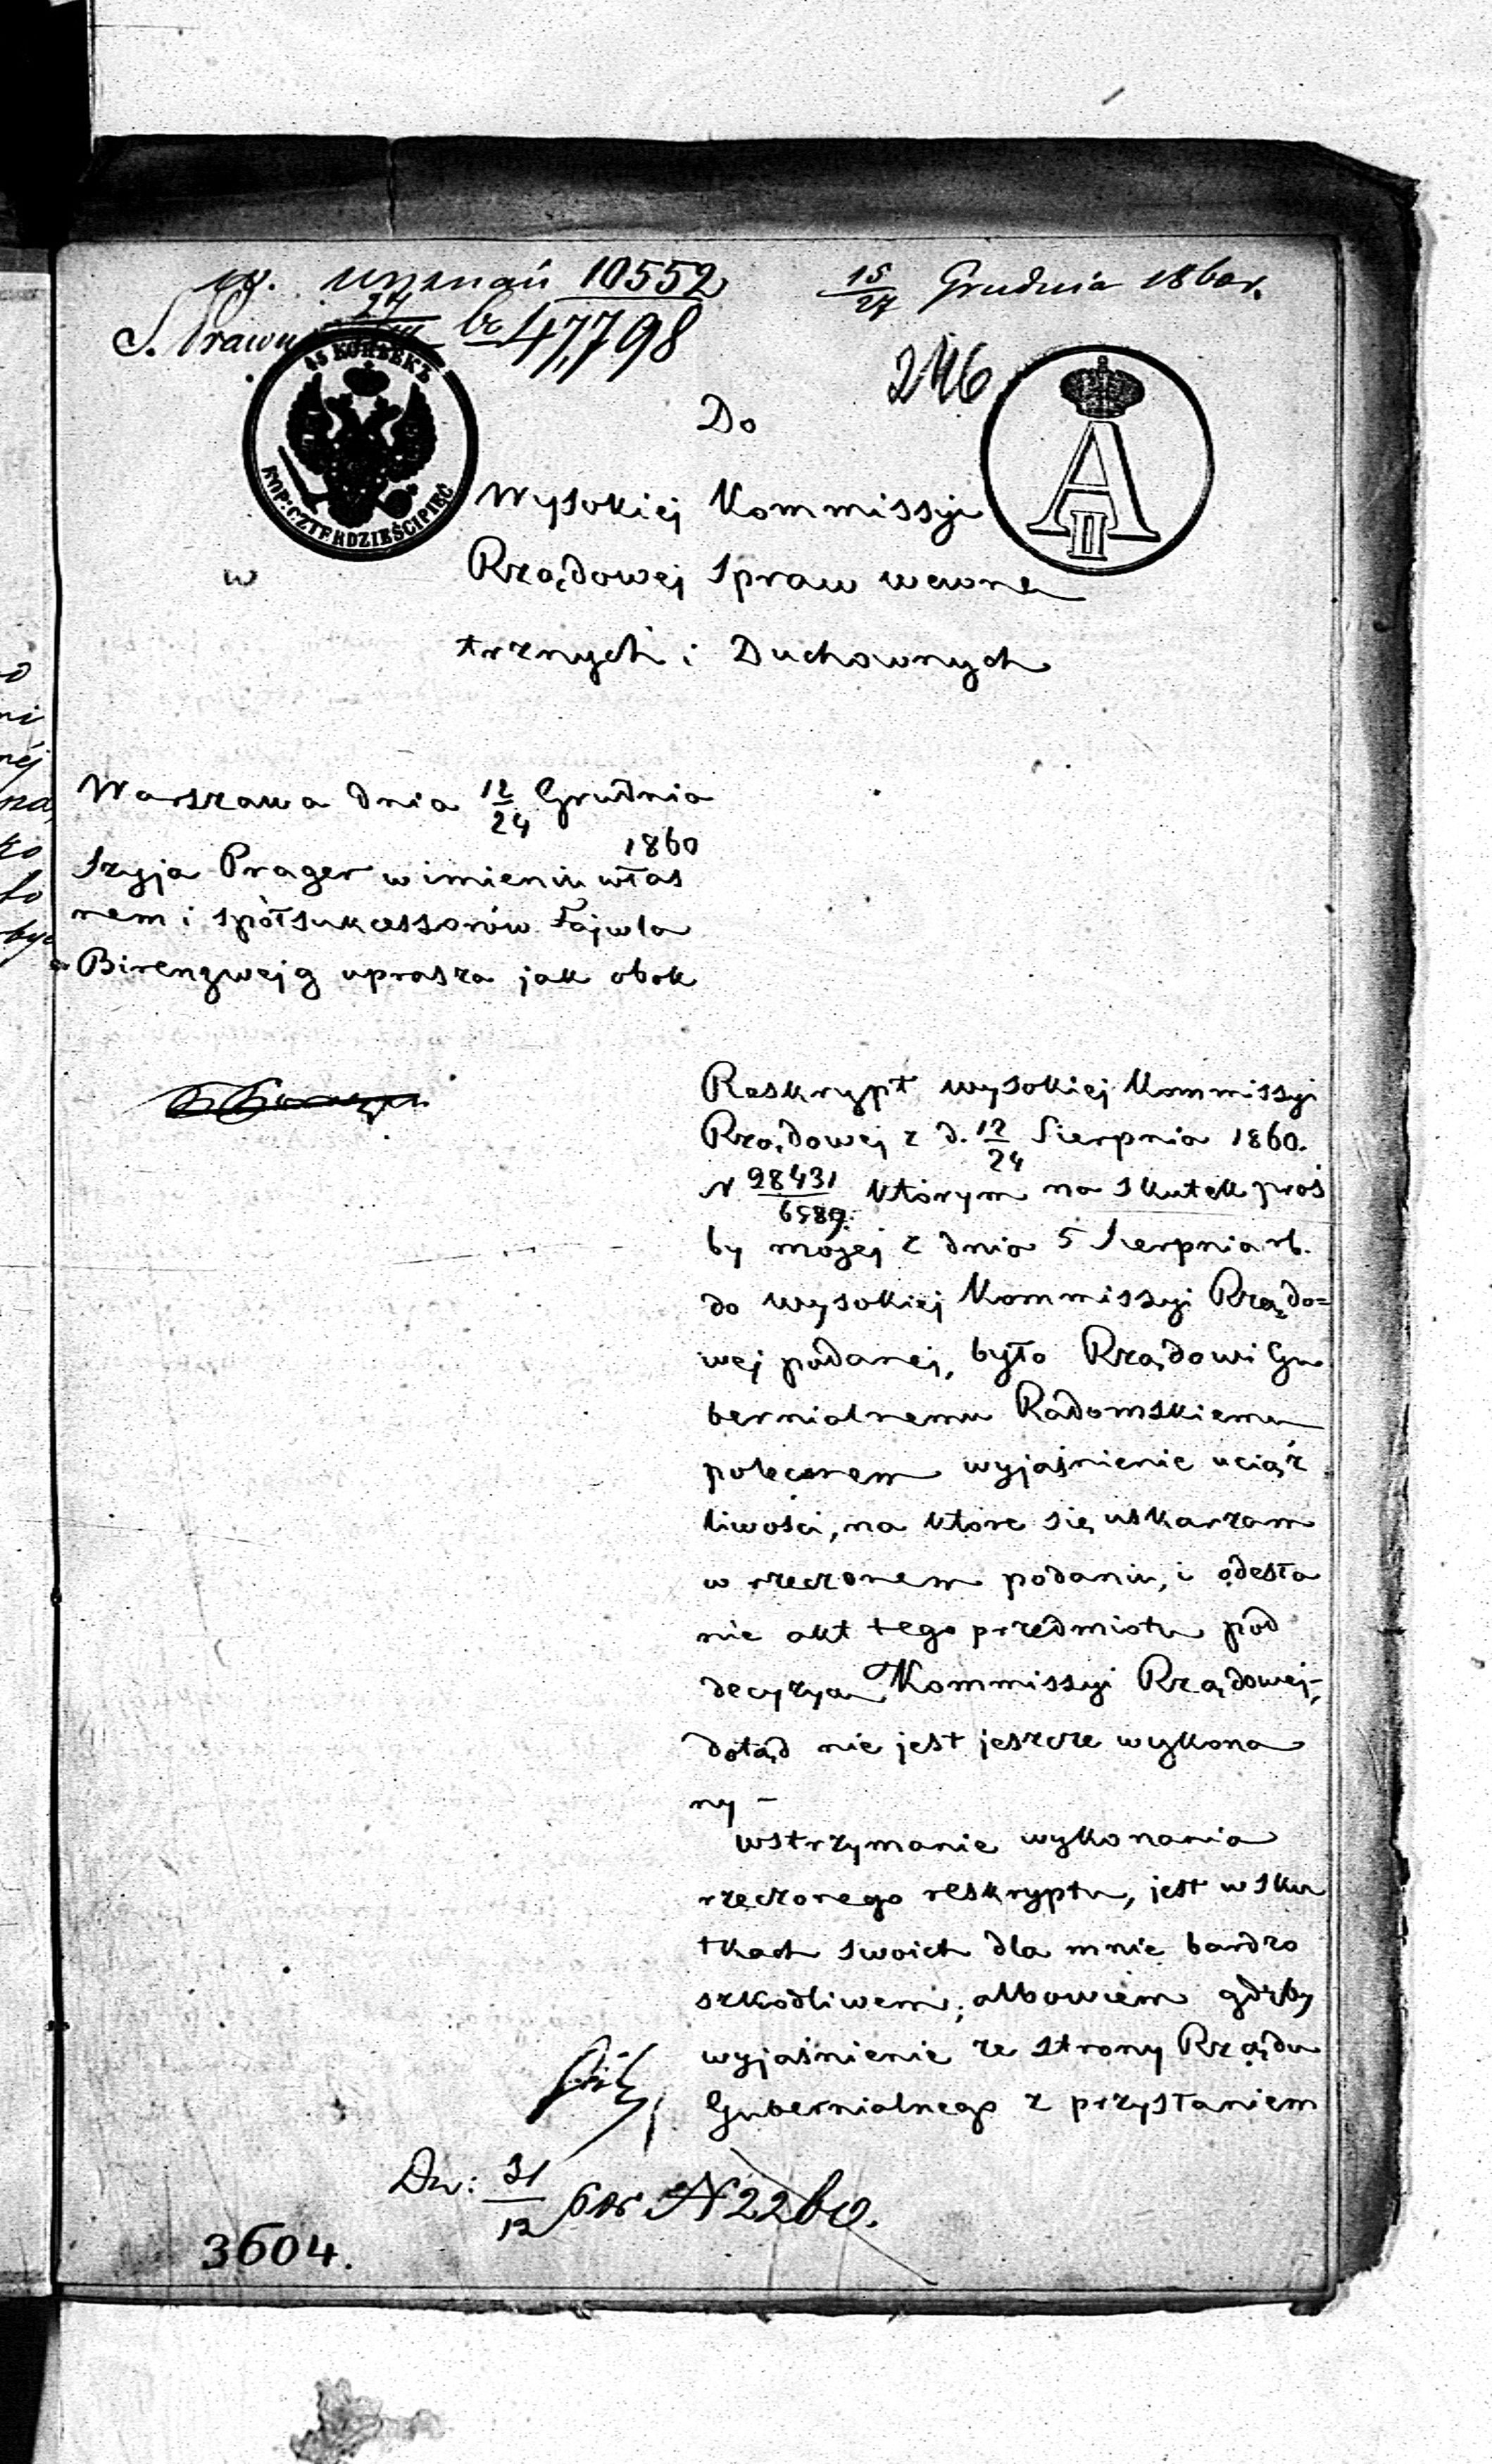 w. wyznań 10552
15/27 Grudnia 1860 r.
S. Prawn 47,798
246
45 КОПѢЕКЪ
KOP: CZTERDZIEŚCIPIĘĆ
A II
Do
Wysokiej Kommissyi
w
Rządowej Spraw wewnę
trznych i Duchownych
Warszawa dnia 12/24 Grudnia
1860
Szyja Prager w imieniu włas
nem i spółsukcessorów Fajwla
Birenzwejg uprasza jak obok
Reskrypt wysokiej Kommissyi
Rządowej z d. 12/24 Sierpnia 1860.
N 98431/6589. którym na skutek proś
by mojej z dnia 5 Sierpnia rb.
do wysokiej Kommissyi Rządo=
wej podanej, było Rządowi Gu
bernialnemu Radomskiemu
poleconem wyjaśnienie uciąż
liwości, na które się uskarżam
w rzeczonem podaniu, i odesła
nie akt tego przedmiotu pod
decyzyą Kommissyi Rządowej,
dotąd nie jest jeszcze wykona
ny –
Wstrzymanie wykonania
rzeczonego reskryptu, jest w sku
tkach swoich dla mnie bardzo
szkodliwem, albowiem gdyby
wyjaśnienie ze strony Rządu
Gubernialnego z przysłaniem
Dn: 31/12 60 r N 2260.
3604.